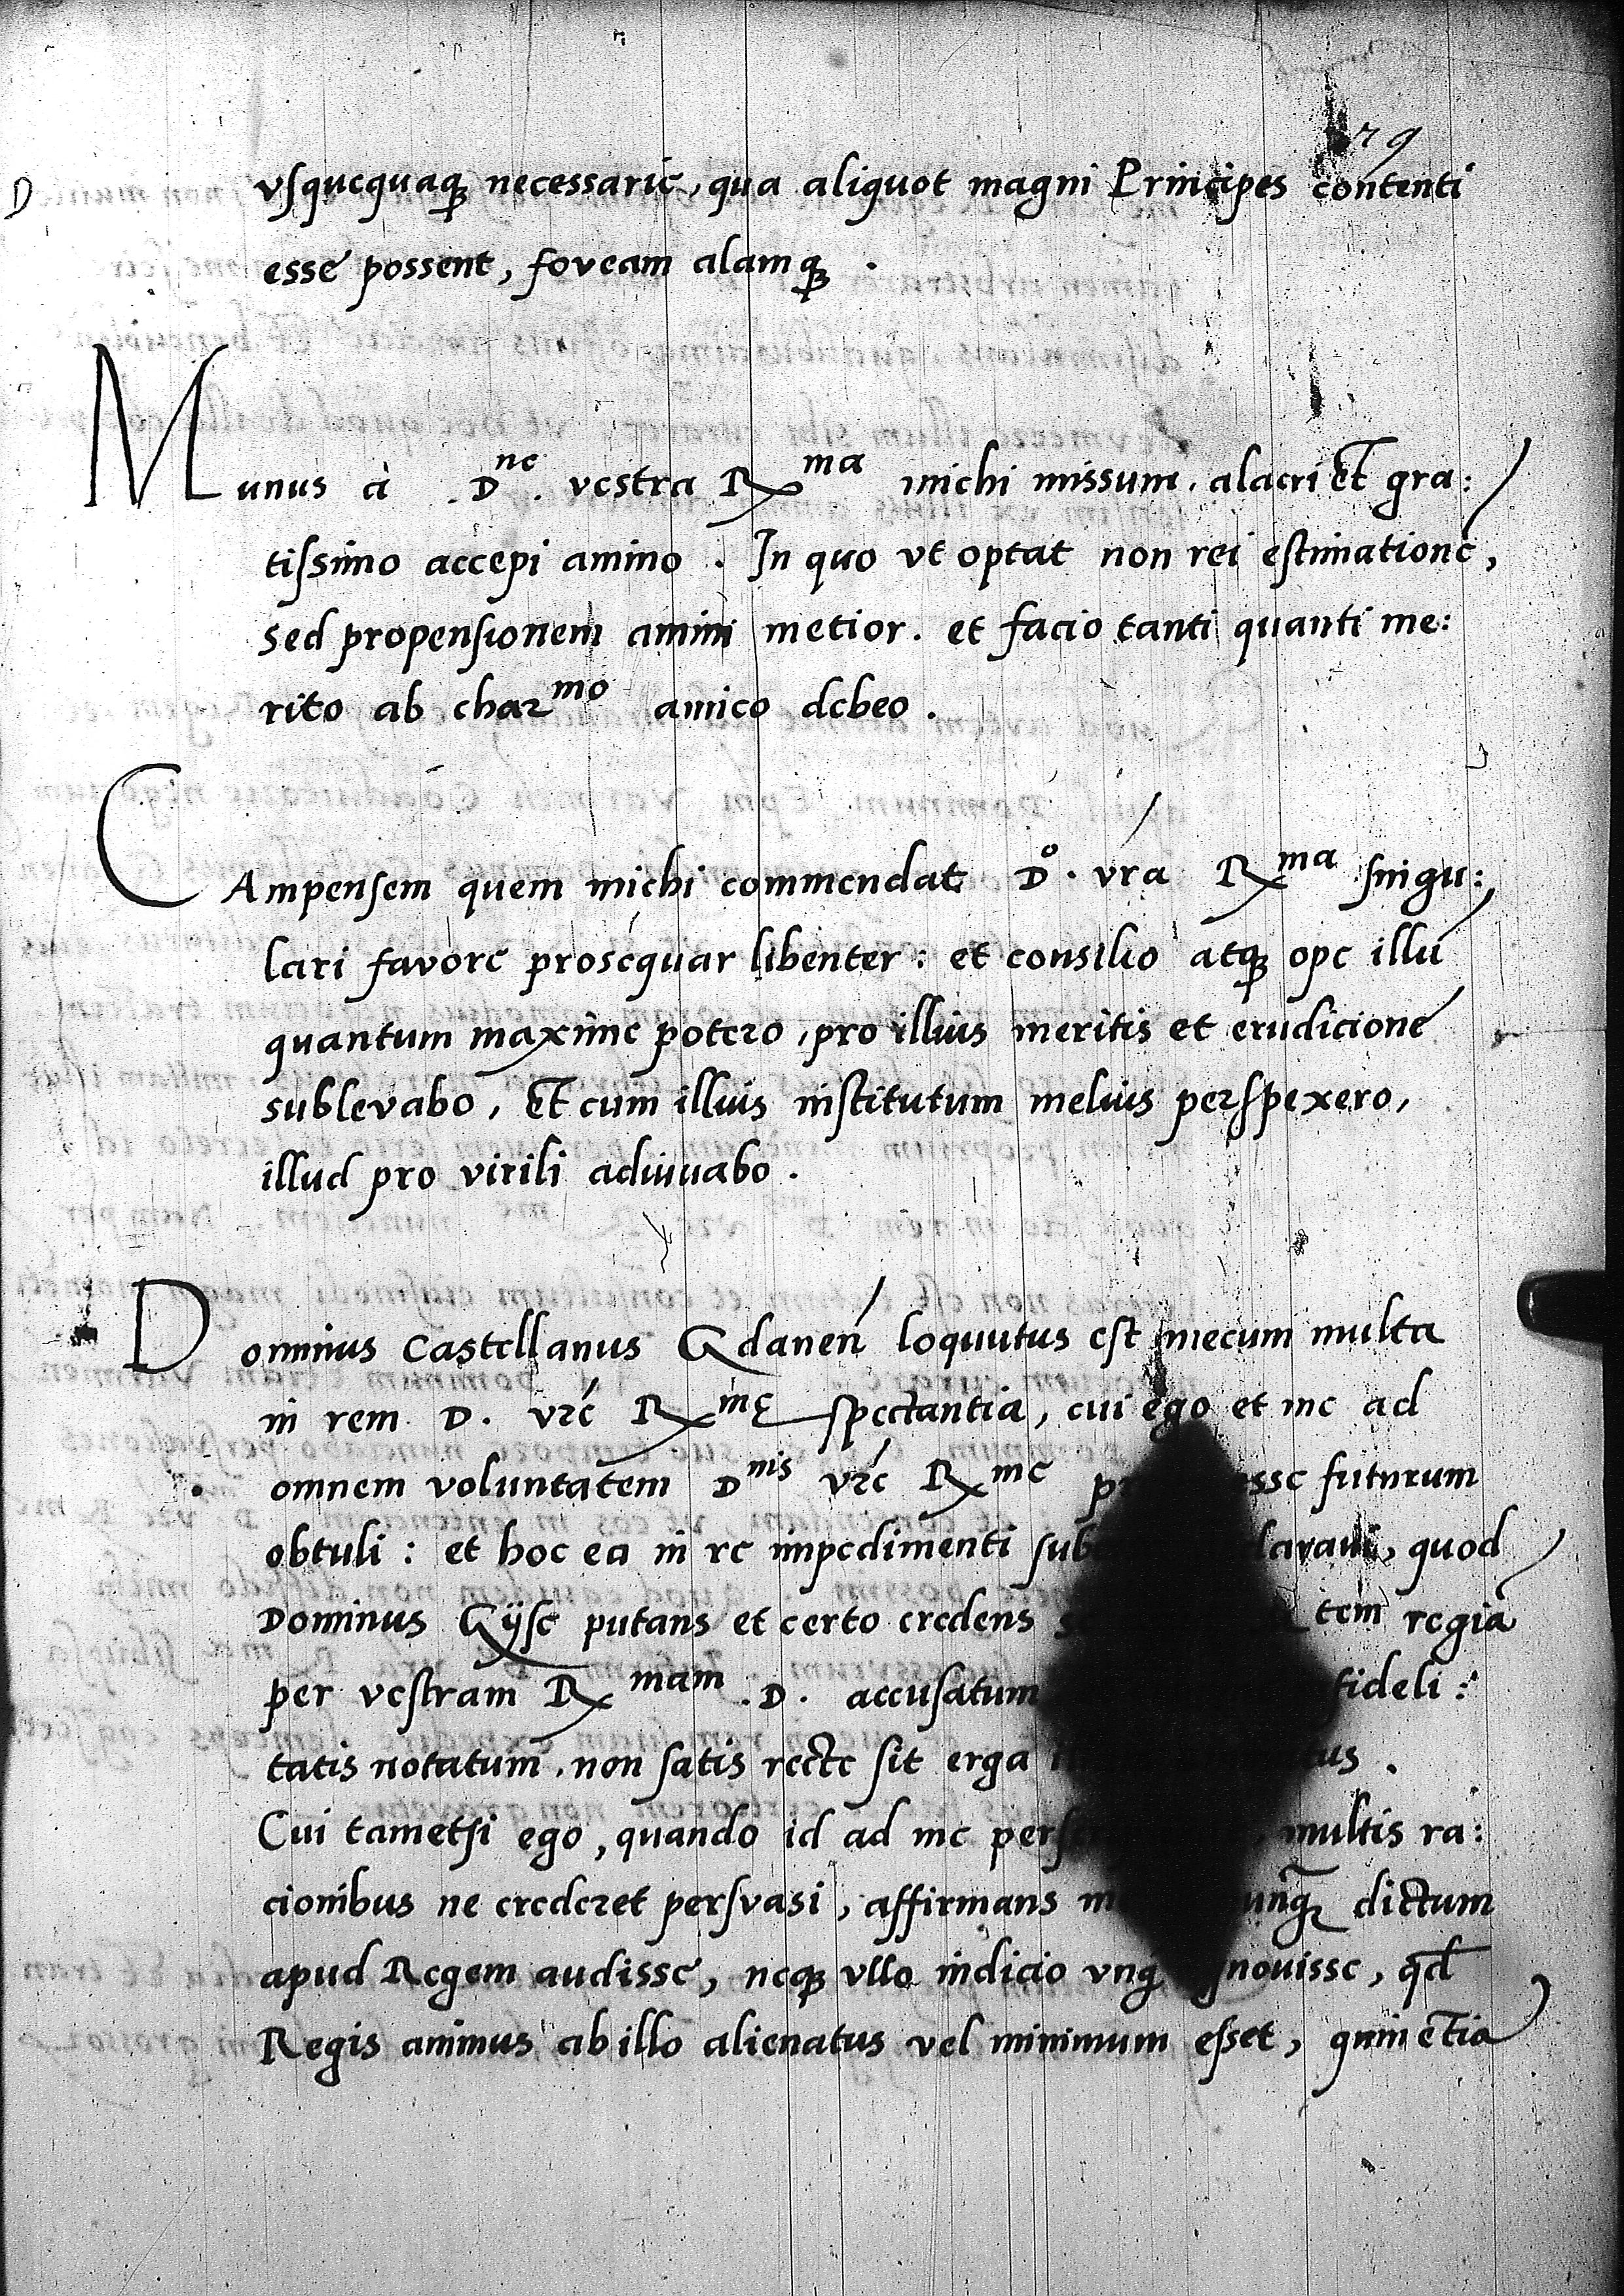 79
D
vsquequaqꝫ necessarie, qua aliquot magni Principes contenti
esse possent, foveam alamqꝫ .
Munus à .D^ne. vestra R^ma michi missum. alacri et gra:
tissimo accepi animo . In quo vt optat non rei estimationē,
sed propensionem animi metior. et facio tanti quanti me:
rito ab char^mo amico debeo .
CAmpensem quem michi commendat D^o. vrā R^ma singu:
lari favore prosequar libenter : et consilio atqꝫ ope illū
quantum maxime potero, pro illius meritis et erudicione
sublevabo, et cum illius institutum melius perspexero,
illud pro virili adiuuabo .
Dominus Castellanus Gdaneń loquutus est mecum multa
in rem D. vrē R^mę spectantia, cui ego et me ad
omnem voluntatem D^nis vrē R^me esse futurum
obtuli : et hoc ea in re impedimenti quod
Dominus Gÿse putans et certo credens tem regiā
per vestram R^mam .D. accusatum fideli:
tatis notatum, non satis recte sit erga
Cui tametsi ego, quando id ad me multis ra:
cionibus ne crederet persvasi, affirmans unqꝫ dictum
apud Regem audisse, neqꝫ vllo indicio vnqꝫ novisse, qd̄
Regis animus ab illo alienatus vel minimum esset, quin etiā